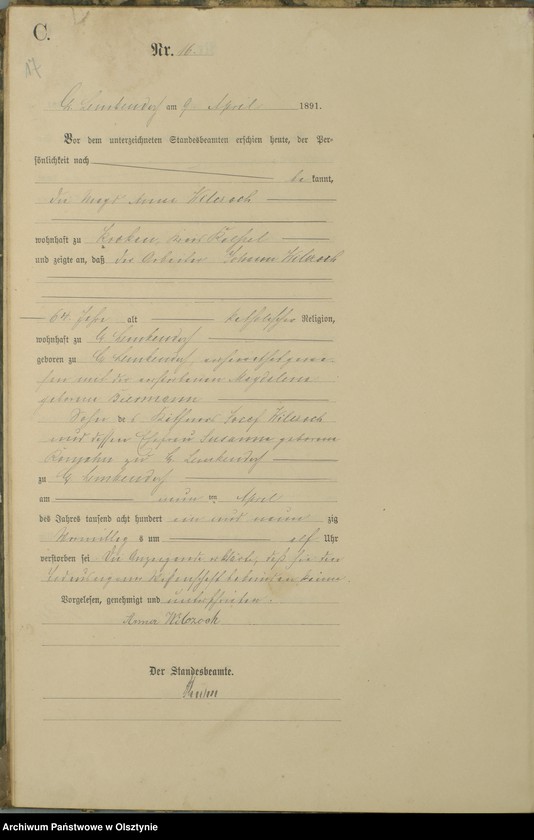 C.
17
Nr. 16
Gr. Lemkendorf am 9 April 1891.
Vor dem unterzeichneten Standesbeamten erschien heute, der Per-
sönlichkeit nach
be kannt,
die Magd Anna Wilczoch
wohnhaft zu
und zeigte an, daß der Arbeiter Johann Wilczoch
64 Jahr alt katholischer Religion,
wohnhaft zu Gr Lemkendorf
geboren zu Gr Lemkendorf, verheirathet gewe-
sen mit der verstorbenen Magdalena
geborene Biermann
Sohn des Josef Wilczoch
und dessen Ehefrau Susanna geborene
zu Gr Lemkendorf
zu Gr Lemkendorf
am neun ten April
des Jahres tausend acht hundert ein und neun zig
Vormittag s um elf Uhr
verstorben sei Die Anzeigende erklärte, daß sie von
Vorgelesen, genehmigt und unterschrieben.
Anna Wilczoch
Der Standesbeamte.
Archiwum Państwowe w Olsztynie